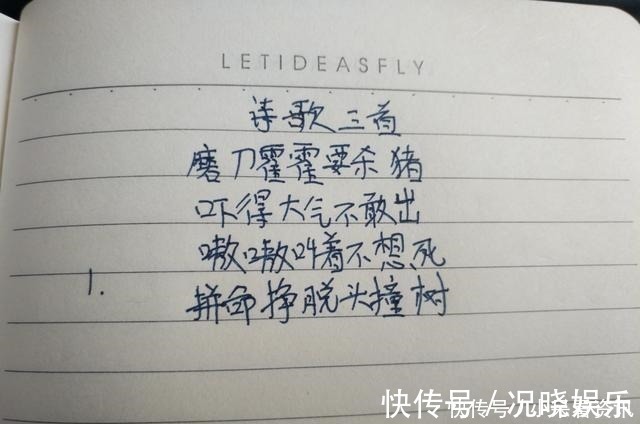 LETIDEASFLY
诗歌三首
磨刀霍霍要杀猪
吓得大气不敢出
嗷嗷叫着不想死
1.
拼命挣脱头撞树
快传号/况晓娱乐
快传号/
资讯